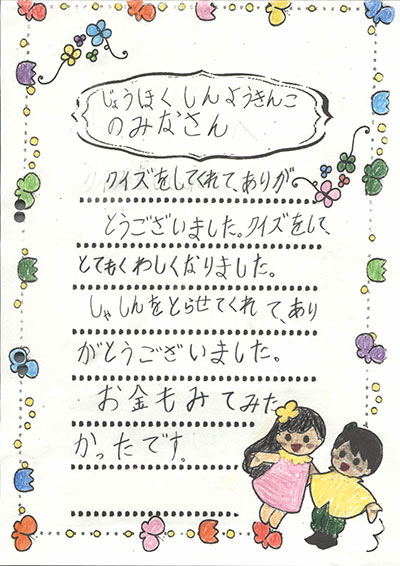 じょうほくしんようきんこ
のみなさん
クイズをしてくれて、ありが
とうございました。クイズをして、
とてもくわしくなりました。
しゃしんをとらせてくれて、あり
がとうございました。
お金もみてみた
かったです。